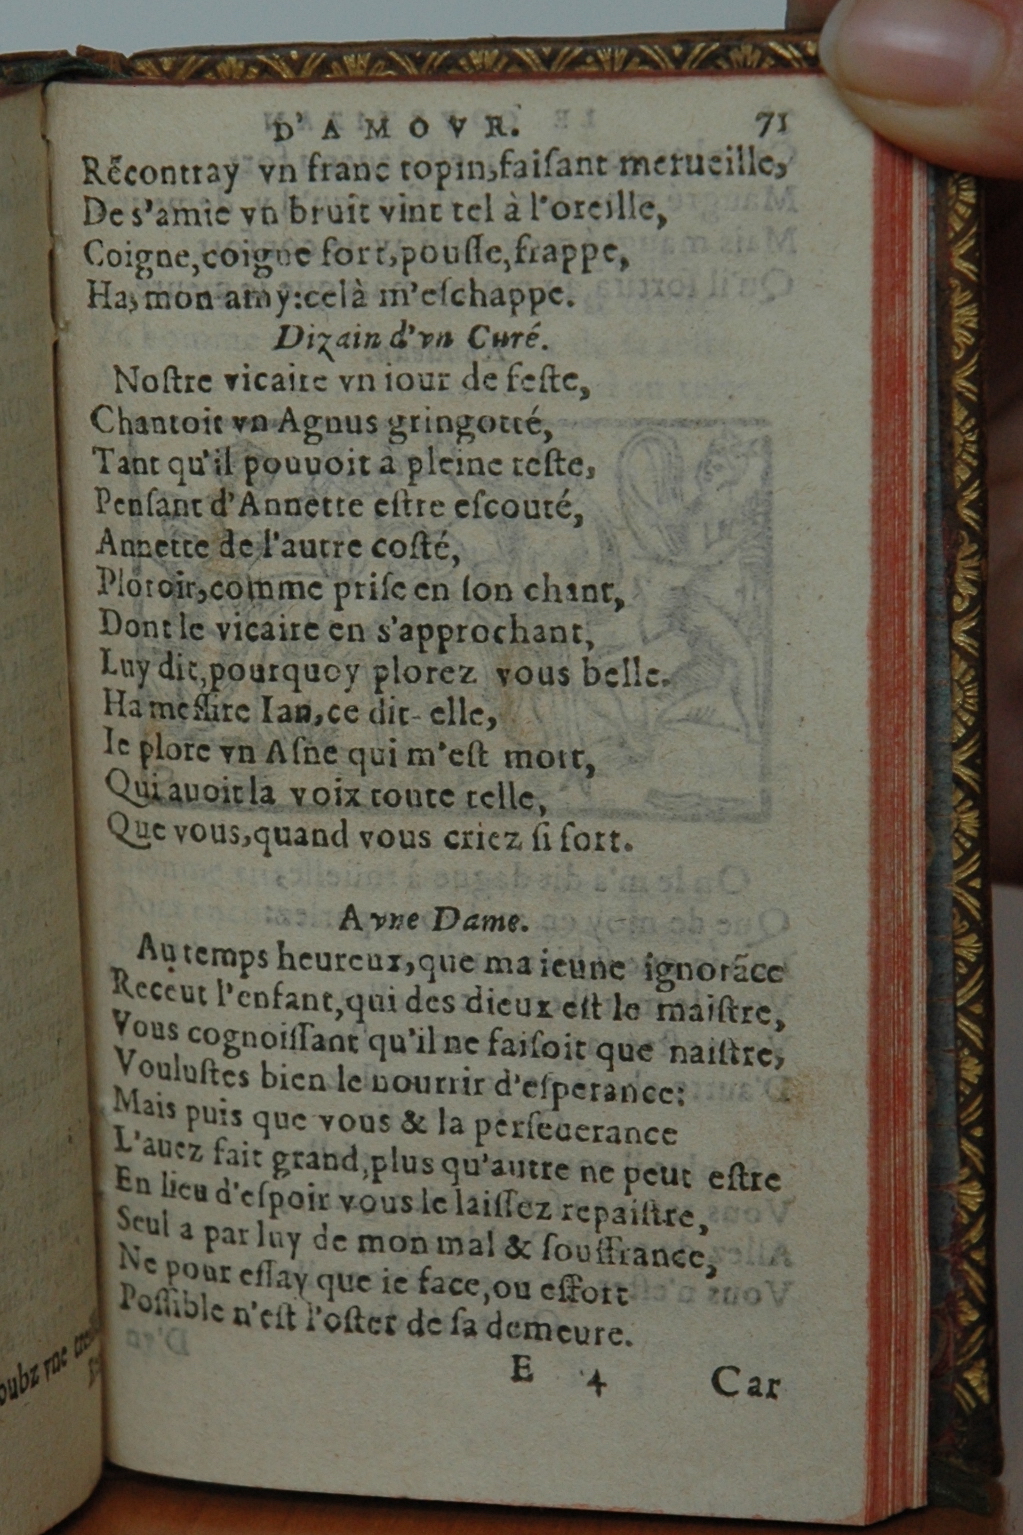 D'AMOVR. 71
Rẽcontray vn franc topin,faiſant merueille,
De s'amie vn bruit vint tel à l'oreille,
Coigne,coigne fort,pouſſe,frappe,
Ha,mon amy:celà m'eſchappe.
Dizain d'vn Curé.
Noſtre vicaire vn iour de feſte,
Chantoit vn Agnus gringotté,
Tant qu'il pouuoit à pleine teſte,
Penſant d'Annette eſtre eſcouté,
Annette de l'autre coſté,
Ploroit,comme priſe en ſon chant,
Dont le vicaire en s'approchant,
Luy dit,pourquoy plorez vous belle.
Ha meſſire Ian,ce dit-elle,
Ie plore vn Aſne qui m'eſt mort,
Qui auoit la voix toute telle,
Que vous,quand vous criez ſi fort.
A vne Dame.
Au temps heureux,que ma ieune ignorãce
Receut l'enfant,qui des dieux eſt le maiſtre,
Vous cognoiſſant qu'il ne faiſoit que naiſtre,
Vouluſtes bien le nourrir d'eſperance:
Mais puis que vous & la perſeuerance
L'auez fait grand,plus qu'autre ne peut eſtre
En lieu d'eſpoir vous le laiſſez repaiſtre,
Seul a par luy de mon mal & ſouffrance,
Ne pour eſſay que ie face,ou effort
Poſſible n'eſt l'oſter de ſa demeure.
E 4 Car
oubz vne